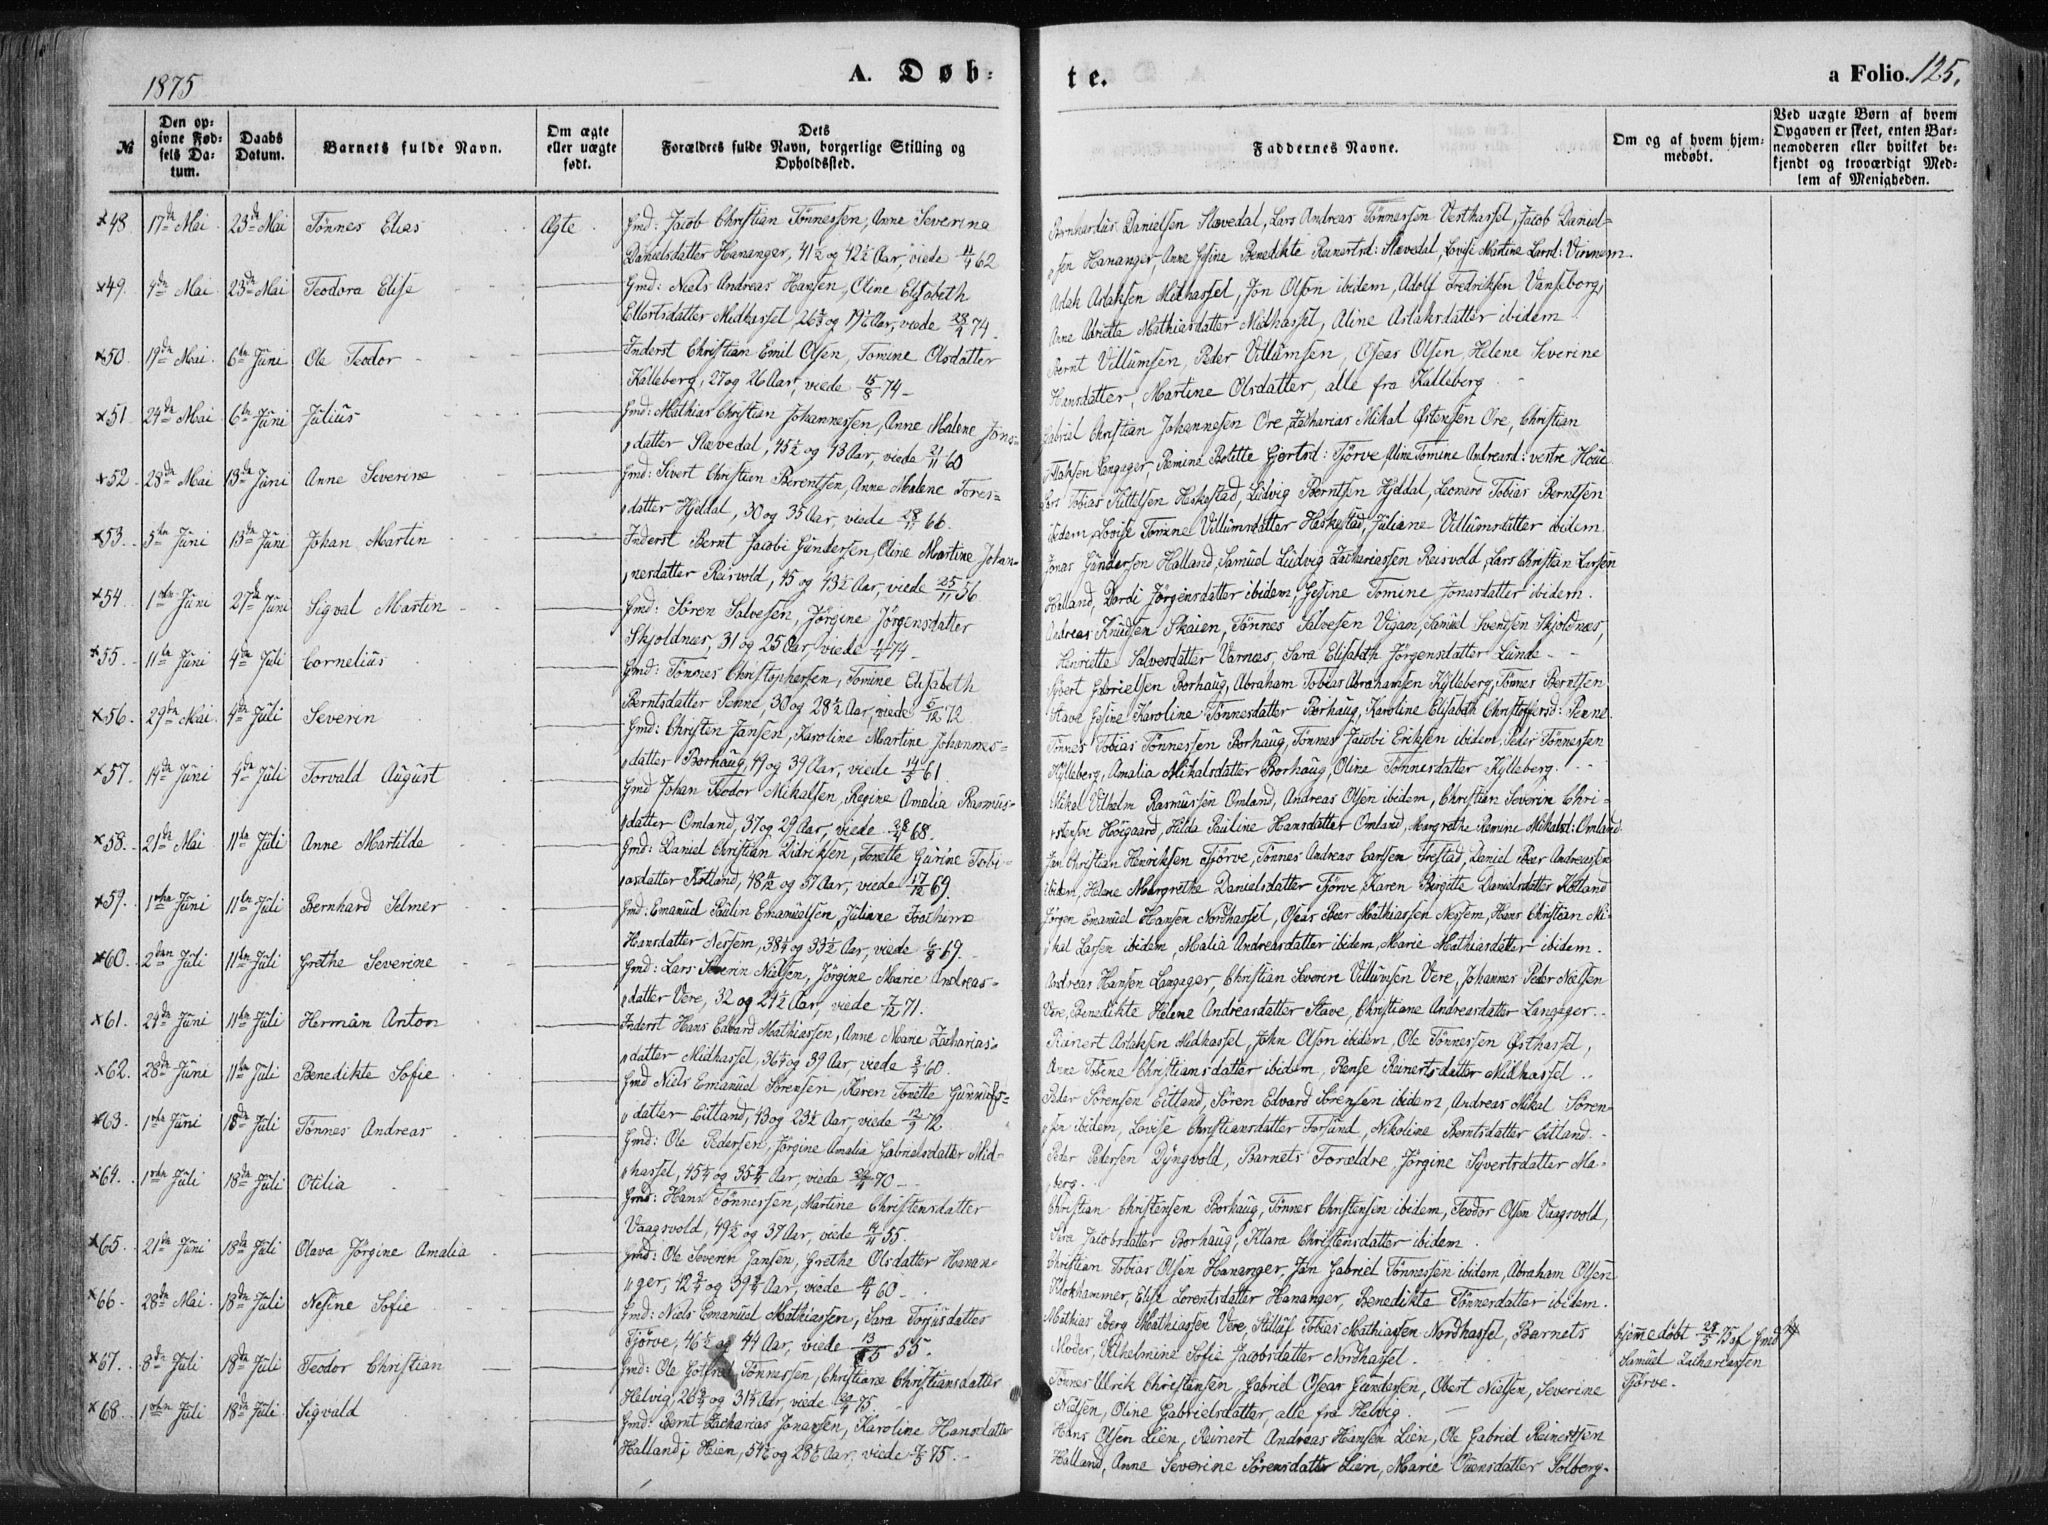 1875
A. Døb-
te.
a Folio. 125.
№
Den op-
givne Fød-
sels Da-
tum.
Daabs
Datum.
Barnets fulde Navn.
Om ægte
eller uægte
født.
Dets
Forældres fulde Navn, borgerlige Stilling og
Opholdssted.
Faddernes Navne.
Om og af hvem hjem-
medøbt.
Ved uægte Børn af hvem
Opgaven er skeet, enten Bar-
nemoderen eller hvilket be-
kjendt og troværdigt Med-
lem af Menigheden.
×48. 17de Mai 23de Mai Tönnes Elias Ægte. Gmd: Jacob Christian Tönnessen, Anne Severine
Danielsdatter Hananger, 41½ og 42½ Aar, viede 11/4 62
Bernhardus Danielsen Slævedal, Lars Andreas Tönnessen Vesthassel, Jacob Daniel-
sen Hananger, Anne Gesine Benedikte Reinertsd: Slævedal, Lovise Martine Larsd: Vinnem.
×49. 4de Mai 23de Mai Teodora Elise Gmd: Niels Andreas Hansen, Oline Elisabeth
Ellertsdatter Midhassel, 26 og 19 Aar, viede 28/4 74.
Aslak Aslaksen Midhassel, Jon Olsen ibidem, Adolf Fredriksen Vanseborg,
Anne Mathiasdatter Midhassel, Aline Aslaksdatter ibidem.
×50. 19de Mai 6te Juni Ole Teodor Inderst Christian Emil Olsen, Tomine Olsdatter
Kalleberg, 27 og 26 Aar, viede 15/8 74
Bernt Villumsen, Peder Villumsen, Oscar Olsen, Helene Severine
Hansdatter, Martine Olsdatter, alle fra Kalleberg.
×51. 24de Mai 6te Juni Julius Gmd: Mathias Christian Johannessen, Anne Malene Jöns-
datter Slævedal, 45½ og 43 Aar, viede 21/11 60
Gabriel Christian Johannesen Ore, Zacharias Mikal Östensen Ore, Christian
Aslaksen Langager, Remine Bolette Gjertsd: Tjörve, Aline Tomine Andreasd: vestre Houe
×52. 28de Mai 13de Juni Anne Severine Gmd: Sivert Christian Berentsen, Anne Malene Tores-
datter Hjeldal, 30 og 35 Aar, viede 28/11 66.
Lars Tobias Kittelsen Heskestad, Ludvig Berntsen Hjeldal, Leonard Tobias Berntsen
ibidem, Lovise Tomine Villumsdatter Heskestad, Juliane Villumsdatter ibidem
×53. 5te Juni 13de Juni Johan Martin Inderst Bernt Jacobi Gundersen, Oline Martine Johan-
nesdatter Reisvold, 45 og 43½ Aar, viede 25/11 56
Jonas Gundersen Halland, Samuel Ludvig Zachariassen Reisvold, Lars Christian Larsen
Halland, Dordi Jörgensdatter ibidem, Gesine Tomine Jonasdatter ibidem.
×54. 1ste Juni 27de Juni Sigval Martin Gmd: Sören Salvesen, Jörgine Jörgensdatter
Skjoldnæs, 31 og 25 Aar, viede 1/4 74
Andreas Knudsen Skaien, Tönnes Salvesen Vigan, Samuel Svendsen Skjoldnæs,
Henriette Salvesdatter Varnæs, Sara Elisabeth Jörgensdatter Lunde
×55. 11te Juni 4de Juli Cornelius Gmd: Tönnes Christophersen, Tomine Elisabeth
Berntsdatter Penne, 30 og 28½ Aar, viede 5/12 72
Syvert Gabrielsen Borhaug, Abraham Tobias Abrahamsen Kylleberg, Tönnes Berntsen
Stave, Gesine Karoline Tönnesdatter Borhaug, Karoline Elisabeth Christoffersd: Penne.
×56. 29de Mai 4de Juli Severin Gmd: Christen Jansen, Karoline Martine Johannes-
datter Borhaug, 49 og 39 Aar, viede 14/5 61.
Tönnes Tobias Tönnessen Borhaug, Tönnes Jacobi Eriksen ibidem, Peder Tönnessen
Kylleberg, Amalia Mikalsdatter Borhaug, Oline Tönnesdatter Kylleberg.
×57. 14de Juni 4de Juli Torvald August Gmd Johan Teodor Mikalsen, Regine Amalia Rasmus-
datter Omland, 37 og 29 Aar, viede 28/4 68.
Mikal Vilhelm Rasmussen Omland, Andreas Olsen ibidem, Christian Severin Chri-
stensen Höigaard, Hilda Pauline Hansdatter Omland, Margrethe Remine Mikalsd: Omland
×58. 21de Mai 11te Juli Anne Martilde Gmd: Daniel Christian Didriksen, Tonette Gurine Tobi-
asdatter Kotland, 48 og 37 Aar, viede 17/12 69.
Jan Christian Henriksen Tjörve, Tönnes Andreas Larssen Frestad, Daniel Beer Andreassen
ibidem, Helene Margrethe Danielsdatter Tjörve, Karen Birgitte Danielsdatter Kotland
×59. 1ste Juni 11te Juli Bernhard Selmer Gmd: Emanuel Paulin Emanuelsen, Juliane Joachime
Hansdatter Nessem, 38 og 33½ Aar, viede 6/8 69.
Jörgen Emanuel Hansen Nordhassel, Oscar Beer Mathiassen Nessem, Hans Christian Mi-
kal Larsen ibidem, Malia Andreasdatter ibidem, Marie Mathiasdatter ibidem.
×60. 2den Juli 11te Juli Grethe Severine Gmd: Lars Severin Nielsen, Jörgine Marie Andreas-
datter Vere, 32 og 24½ Aar, viede 7/12 71.
Andreas Hansen Langager, Christian Severin Villumsen Vere, Johannes Peder Nielsen
Vere, Benedikte Helene Andreasdatter Stave, Christiane Andreasdatter Langager.
×61. 24de Juni 11te Juli Herman Anton Inderst Hans Edvard Mathiassen, Anne Marie Zacharias-
datter Midhassel, 36 og 39 Aar, viede 3/3 60.
Reinert Aslaksen Midhassel, John Olson ibidem, Ole Tönnessen Östhassel,
Anne Tobine Christiansdatter ibidem, Rense Reinertsdatter Midhassel
×62. 28de Juni 11te Juli Benedikte Sofie Gmd Niels Emanuel Sörensen, Karen Tonette Gunnufs-
datter Eitland, 43 og 23½ Aar, viede 12/9 72
Peder Sörensen Eitland, Sören Edvard Sörensen ibidem, Andreas Mikal Sören-
sen ibidem, Lovise Christiansdatter Farsund, Nikoline Berntsdatter Eitland.
×63. 1ste Juni 18de Juli Tönnes Andreas Gmd: Ole Pedersen, Jörgine Amalia Gabrielsdatter Mid-
hassel, 45 og 35 Aar, viede 29/4 70
Peder Petersen Dyngvold, Barnets Forældre, Jörgine Syvertsdatter Ma-
berg.
×64. 1ste Juli 18de Juli Otilia Gmd: Hans Tönnessen, Martine Christensdatter
Vaagsvold, 49½ og 37 Aar, viede 14/4 55.
Christian Christensen Borhaug, Tönnes Christensen ibidem, Teodor Olsen Vaagsvold,
Sara Jacobsdatter Borhaug, Klara Christensdatter ibidem.
×65. 21de Juni 18de Juli Olava Jörgine Amalia Gmd: Ole Severin Jansen, Grethe Olsdatter Hanan-
ger, 42 og 39 Aar, viede 4/4 60
Christian Tobias Olsen Hananger, Jan Gabriel Tönnessen ibidem, Abraham Olsen
Klokhammer, Elise Lorentsdatter Hananger, Benedikte Tönnesdatter ibidem.
×66. 28de Mai 18de Juli Nesine Sofie Gmd: Niels Emanuel Mathiassen, Sara Torjusdatter
Tjörve, 46½ og 44 Aar, viede 13/5 55.
Mathias Berg Mathiassen Vere, Stilluf Tobias Mathiassen Nordhassel, Barnets
Moder, Vilhelmine Sofie Jacobsdatter Nordhassel.
hjemmedöbt 28/5 75 af Gmd
Samuel Zachariassen
Tjörve.
×67. 8de Juli 18de Juli Teodor Christian Gmd: Ole Gotfred Tönnessen, Christiane Christiansdatter
Helvig, 26 og 31 Aar, viede 20/4 75.
Tönnes Ulrik Christensen, Gabriel Oscar Gundersen, Obert Nielsen, Severine
Nielsen, Oline Gabrielsdatter, alle fra Helvig.
×68. 1ste Juli 18de Juli Sigvald Gmd: Bernt Zacharias Jonassen, Karoline Hansdatter
Halland, Heien, 54 og 28 Aar, viede 2/5 75.
Hans Olsen Lien, Reinert Andreas Hansen Lien, Ole Gabriel Reinertsen
Halland, Anne Severine Sörensdatter Lien, Marie Svensdatter Solberg.